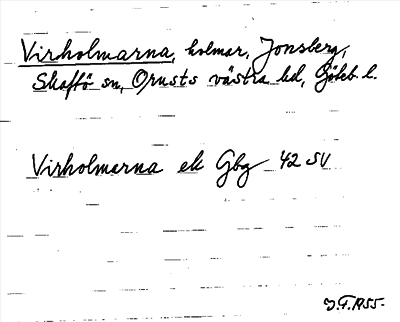 Virholmarna, holmar, Jonsberg,
Skaftö sn, Orusts västra hd, Göteb. l.
Virholmarna ek Gbg 42 SV
J.F. 1955.